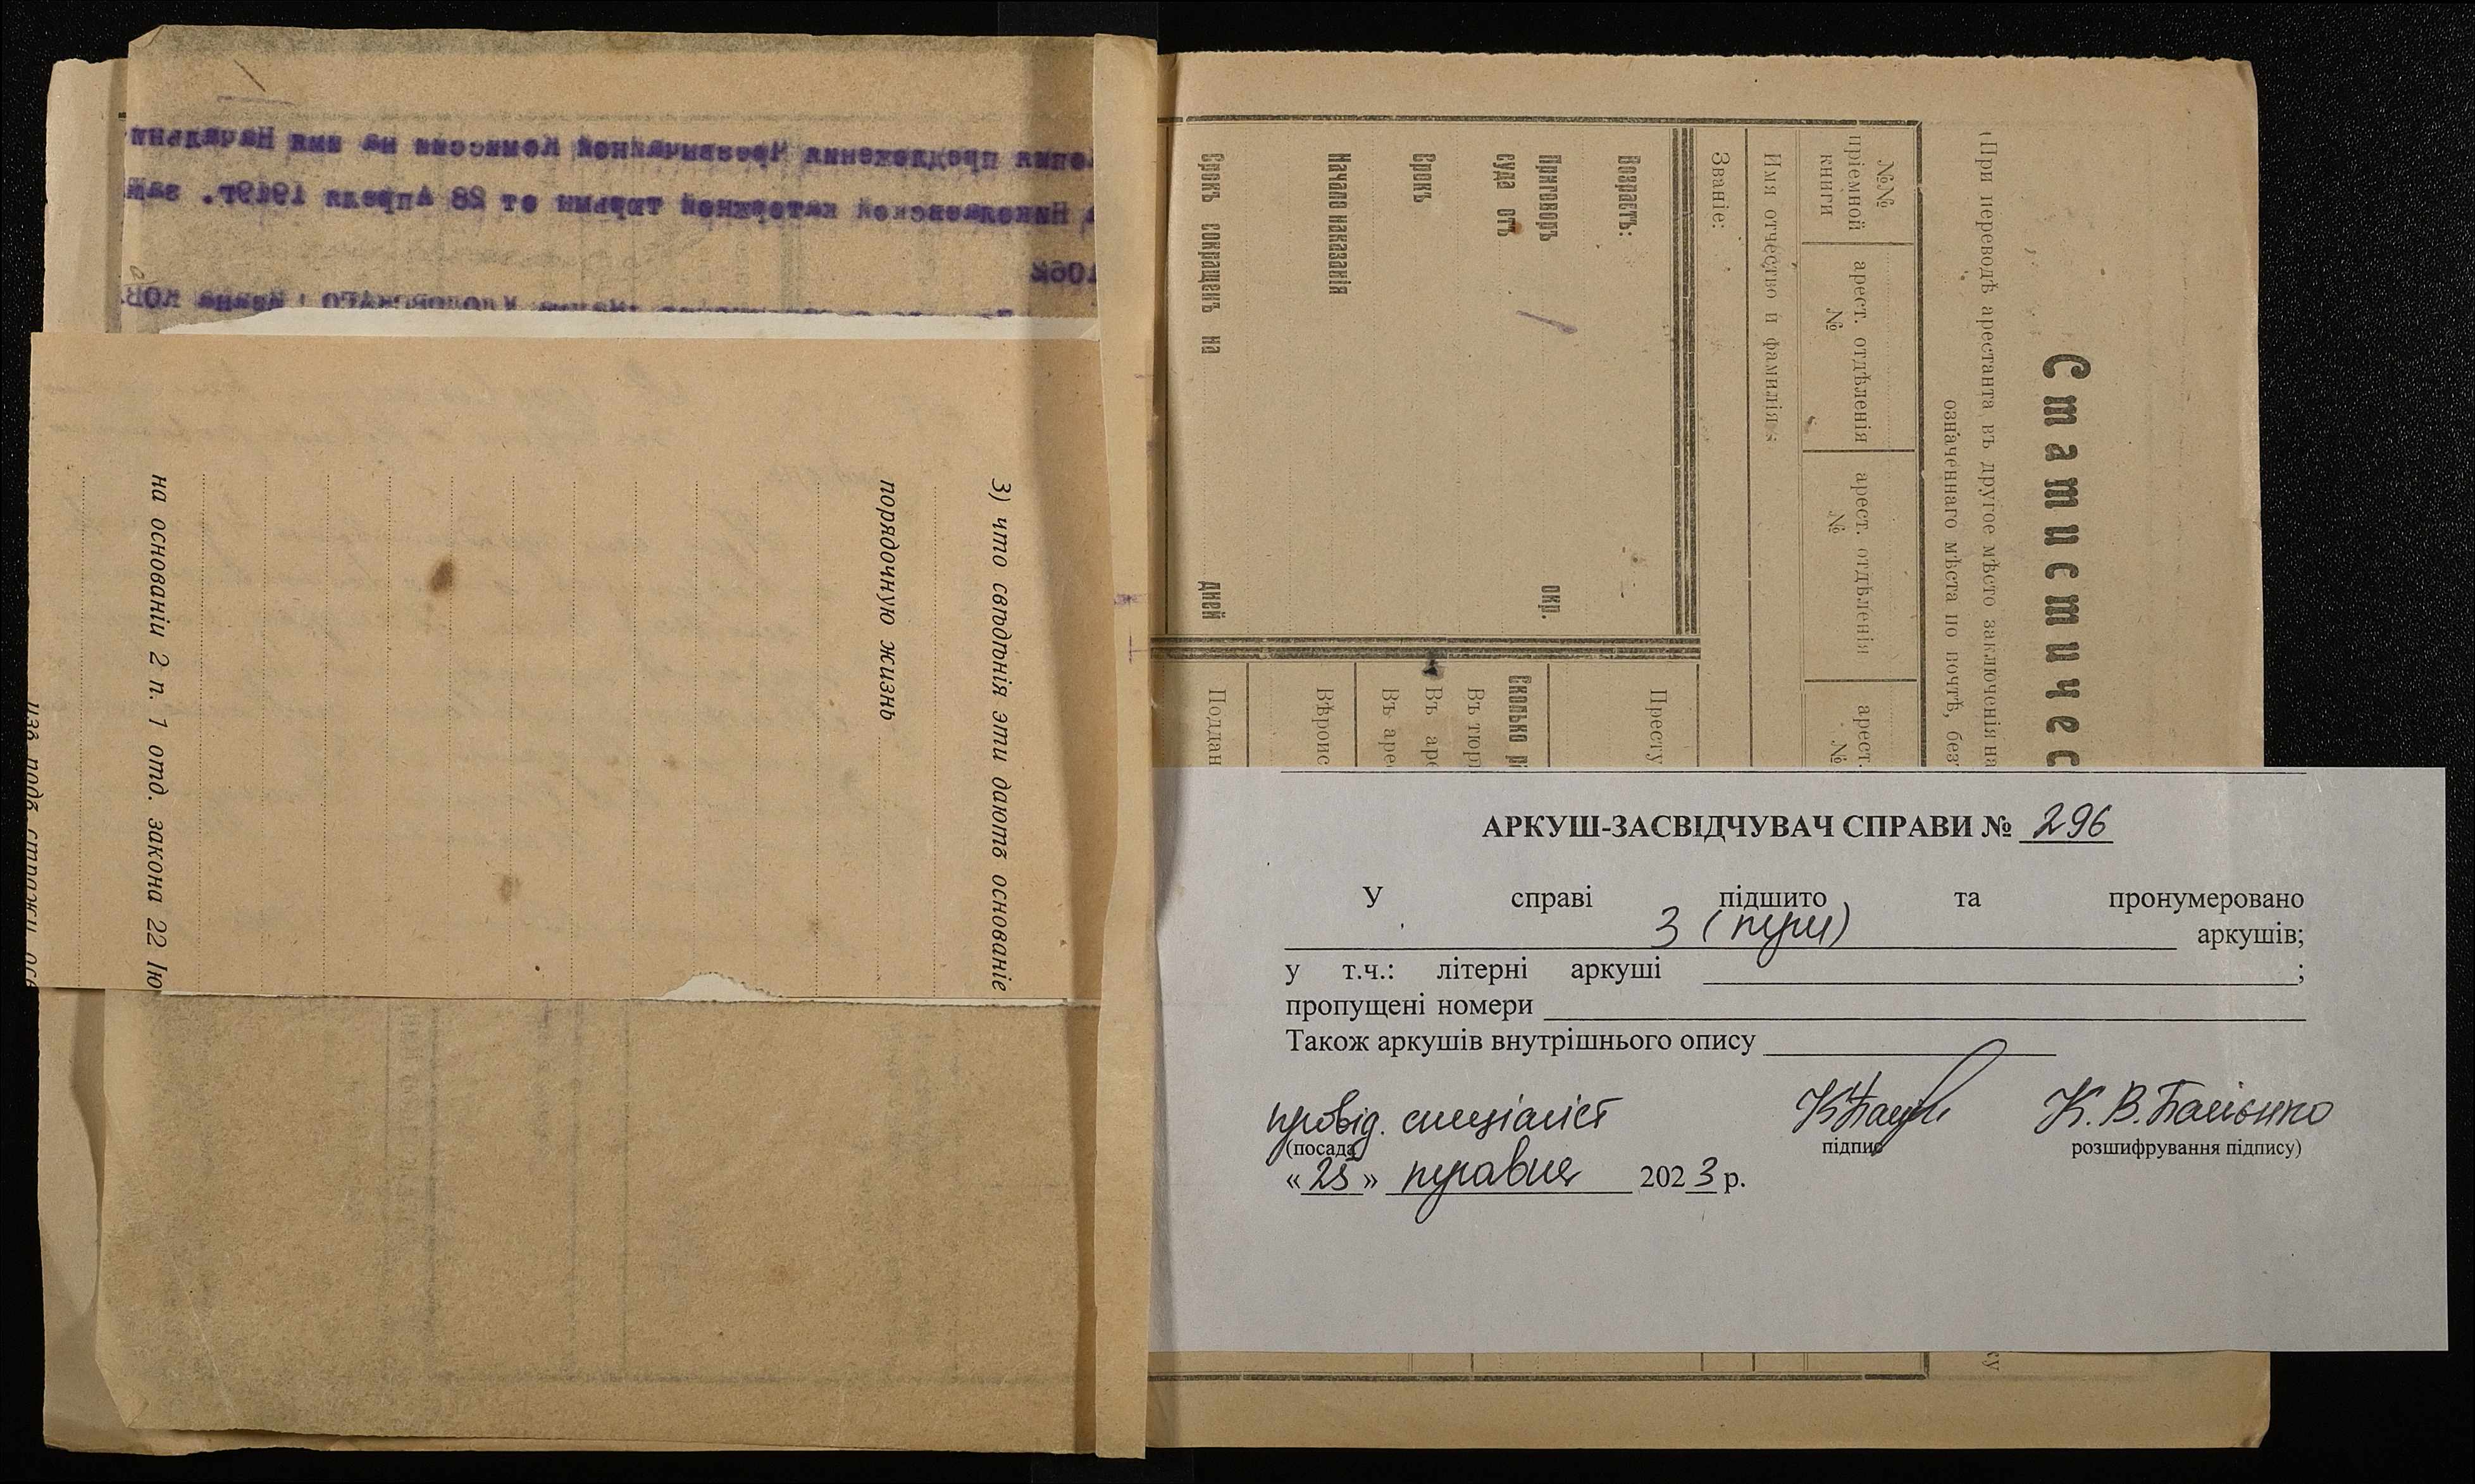 ения предложения Чрезвычайной Комиссии на имя Начальни
Николаевской каторжной тюрьмы от 28 Апреля 1919г. за№
1062
3) что свѣдѣнія эти даютъ основаніе
порядочную жизнь
на основаніи 2 п. 1 отд. закона 22 Ію
изъ подъ стражи осв
Статистичес
(При переводѣ арестанта въ другое мѣсто заключенія на
означеннаго мѣста по почтѣ, без
№№ пріемной книги
арест. отдѣленія №
арест. отдѣленія №
арест. №
Имя отчество и фамилія:
Званіе:
Возрастъ:
Приговоръ окр.
суда отъ
Срокъ
Начало наказанія
Срокъ сокращенъ на дней
Престу
Сколько р
Въ тюр
Въ аре
Въ аре
Вѣроис
Поддан
АРКУШ-ЗАСВІДЧУВАЧ СПРАВИ № 296
У справі підшито та пронумеровано
3 (три) аркушів;
у т.ч.: літерні аркуші ;
пропущені номери
Також аркушів внутрішнього опису
провід. спеціаліст К. В.
(посада) підпис розшифрування підпису)
«25» травня 2023 р.